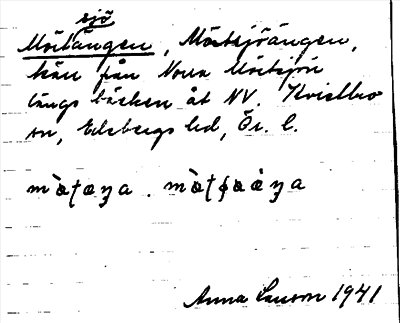 sjö
Mörtängen, Mörtsjöängen,
från Norra Mörtsjön
längs bäcken åt NV. Kvistbro
sn, Edsbergs hd, Ör. l.
Anna Larsson 1941